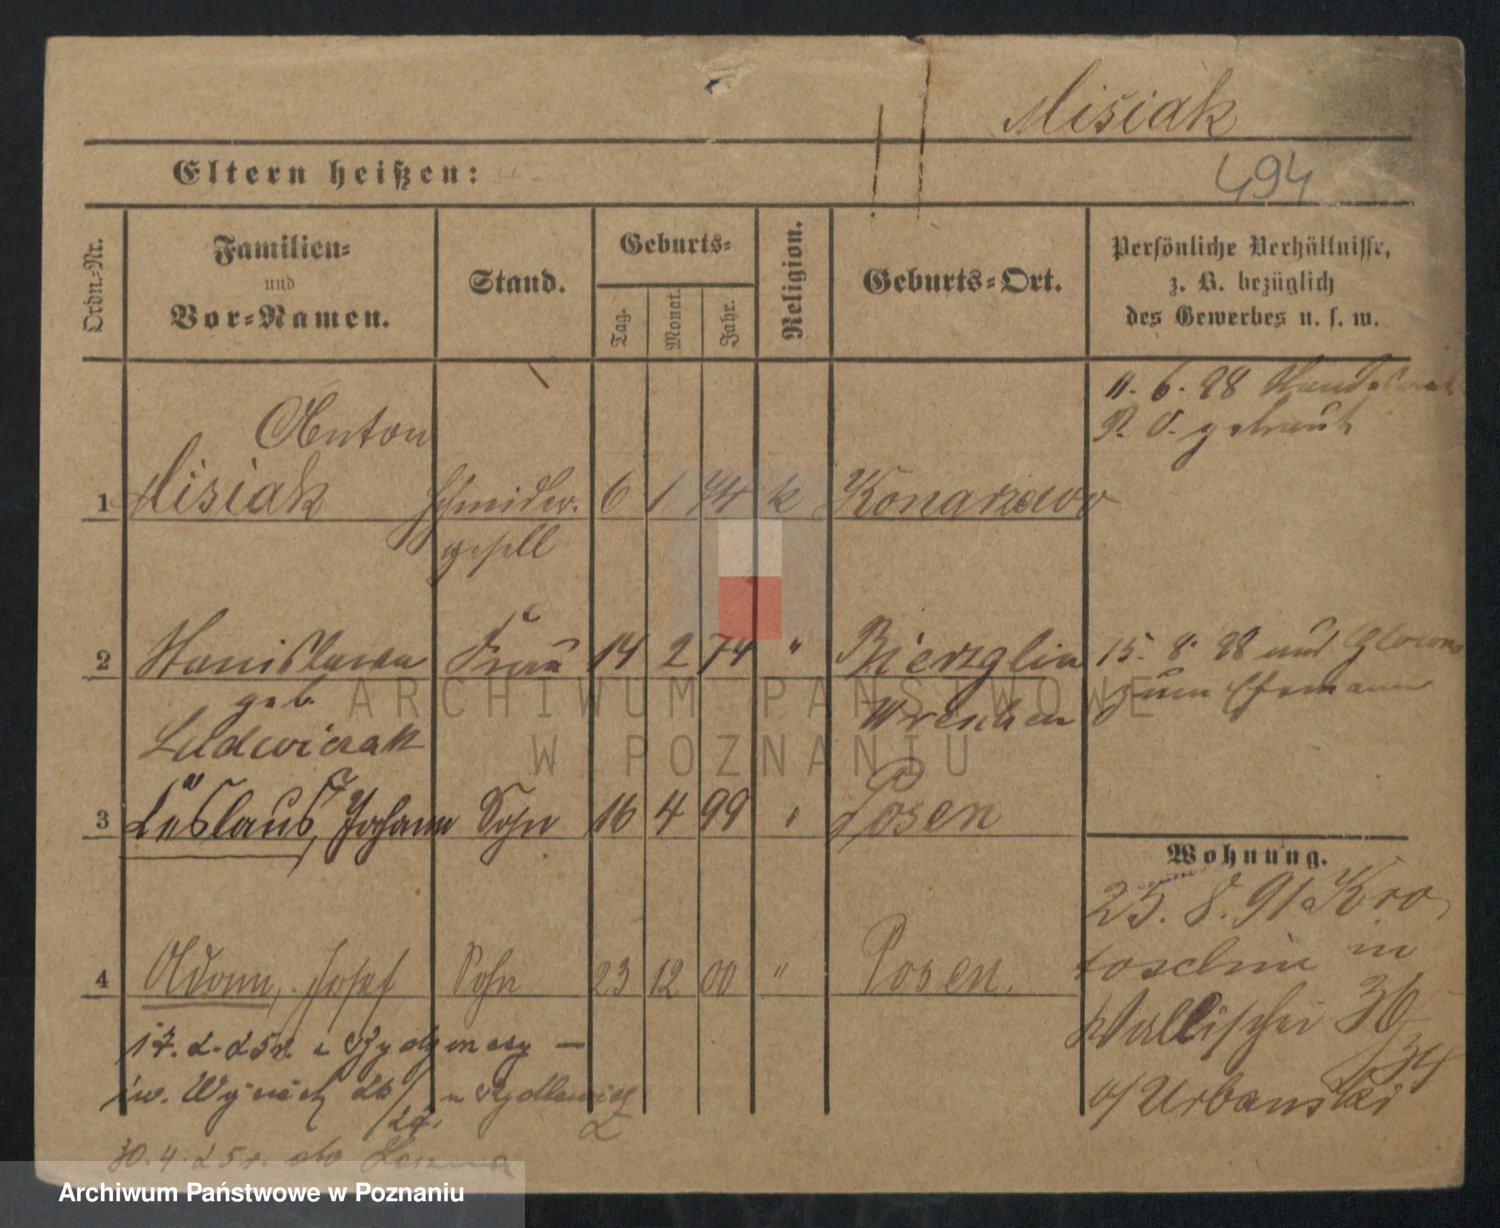 Misiak
Eltern heißen:
494
Ordn.-Nr.
Familien-
und
Vor-Namen.
Stand.
Geburts-
Tag.
Monat.
Jahr.
Religion.
Geburts-Ort.
Persönliche Verhältnisse,
z. B. bezüglich
des Gewerbes u. s. w.
11. 6. 98
R. O. getraut
Anton
1 Misiak Schneider- 6 1 74 k Konarzewo
gesell
2 Stanislawa Frau 14 2 74 " Bierzglin 15. 8. 98 aus Glowno
geb. Wreschen zum Ehemann
Ludwiczak
3 Johann Sohn 16 4 99 " Posen
Wohnung.
25. 8. 91 Kro
4 Adam, Josef Sohn 23 12 00 " Posen. toschin in
Wallischei 36
/34
o/ Urbanski
17. 2. 25r. z Bydgoszczy —
30. 4. 25r. do Leszna
ARCHIWUM PAŃSTWOWE
W POZNANIU
Archiwum Państwowe w Poznaniu